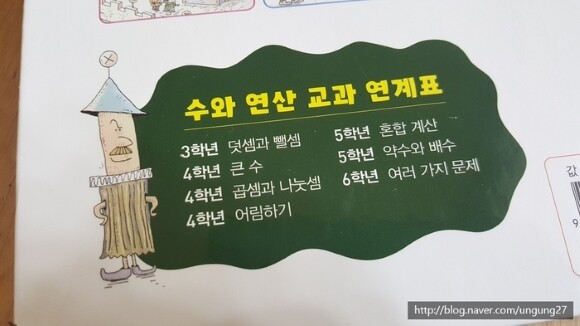 수와 연산 교과 연계표
3학년 덧셈과 뺄셈
4학년 큰 수
4학년 곱셈과 나눗셈
4학년 어림하기
5학년 혼합 계산
5학년 약수와 배수
6학년 여러 가지 문제
값
9
http://blog.naver.com/ungung27